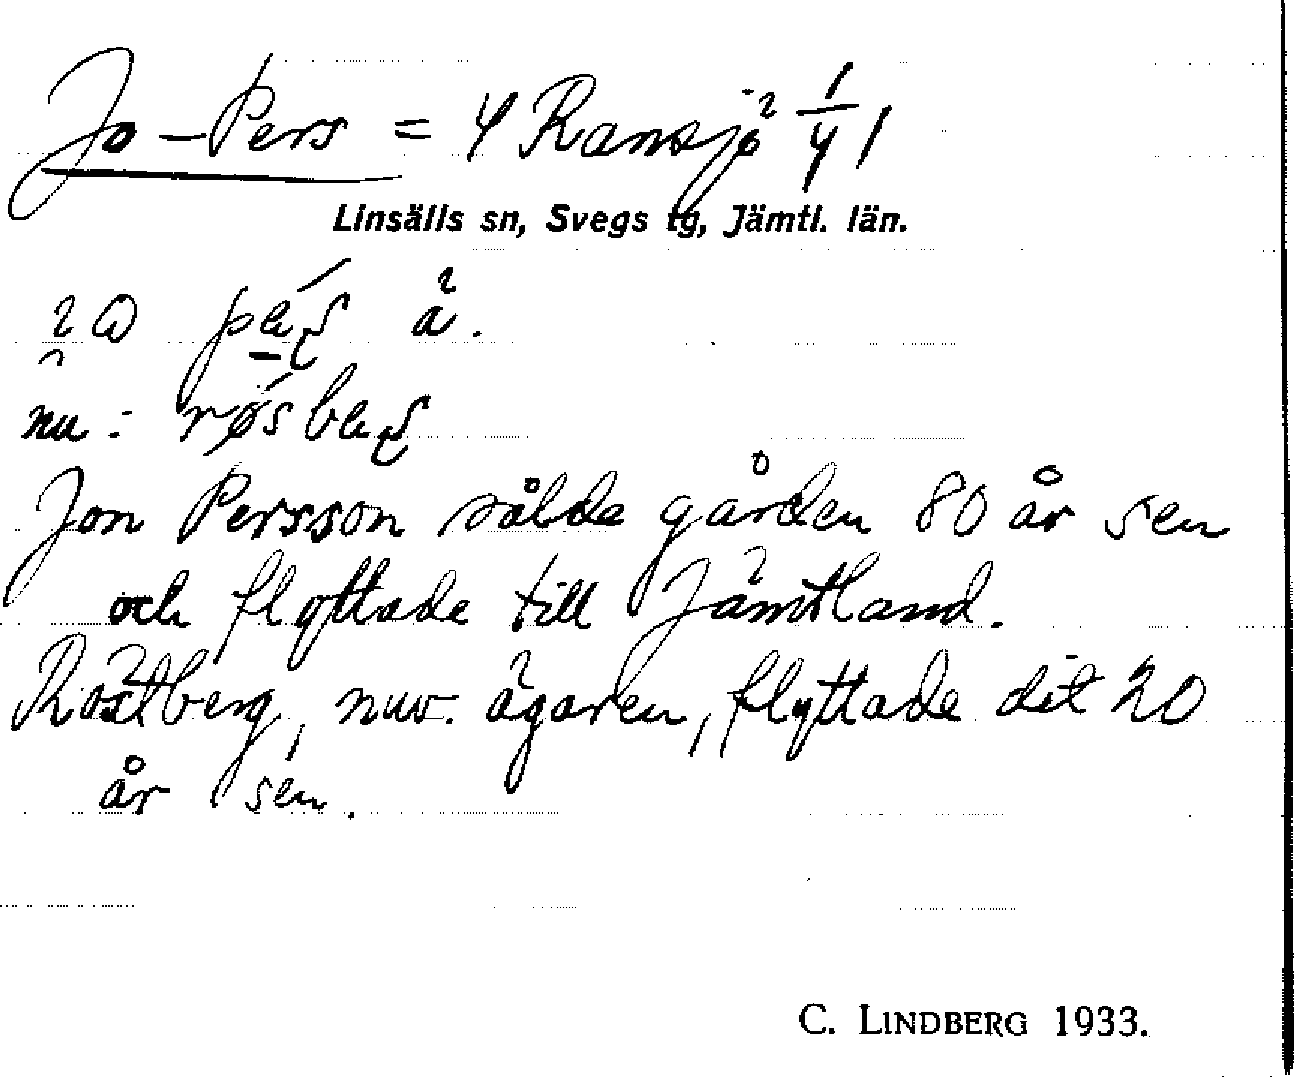 Jo-Pers = 4 Ransjö 1/4 1
Linsälls sn, Svegs tg, Jämtl. län.
å.
nu:
Jon Persson sålde gården 80 år sen
och flyttade till Jämtland.
Röstberg, nuv. ägaren, flyttade dit 20
år sen.
C. LINDBERG 1933.